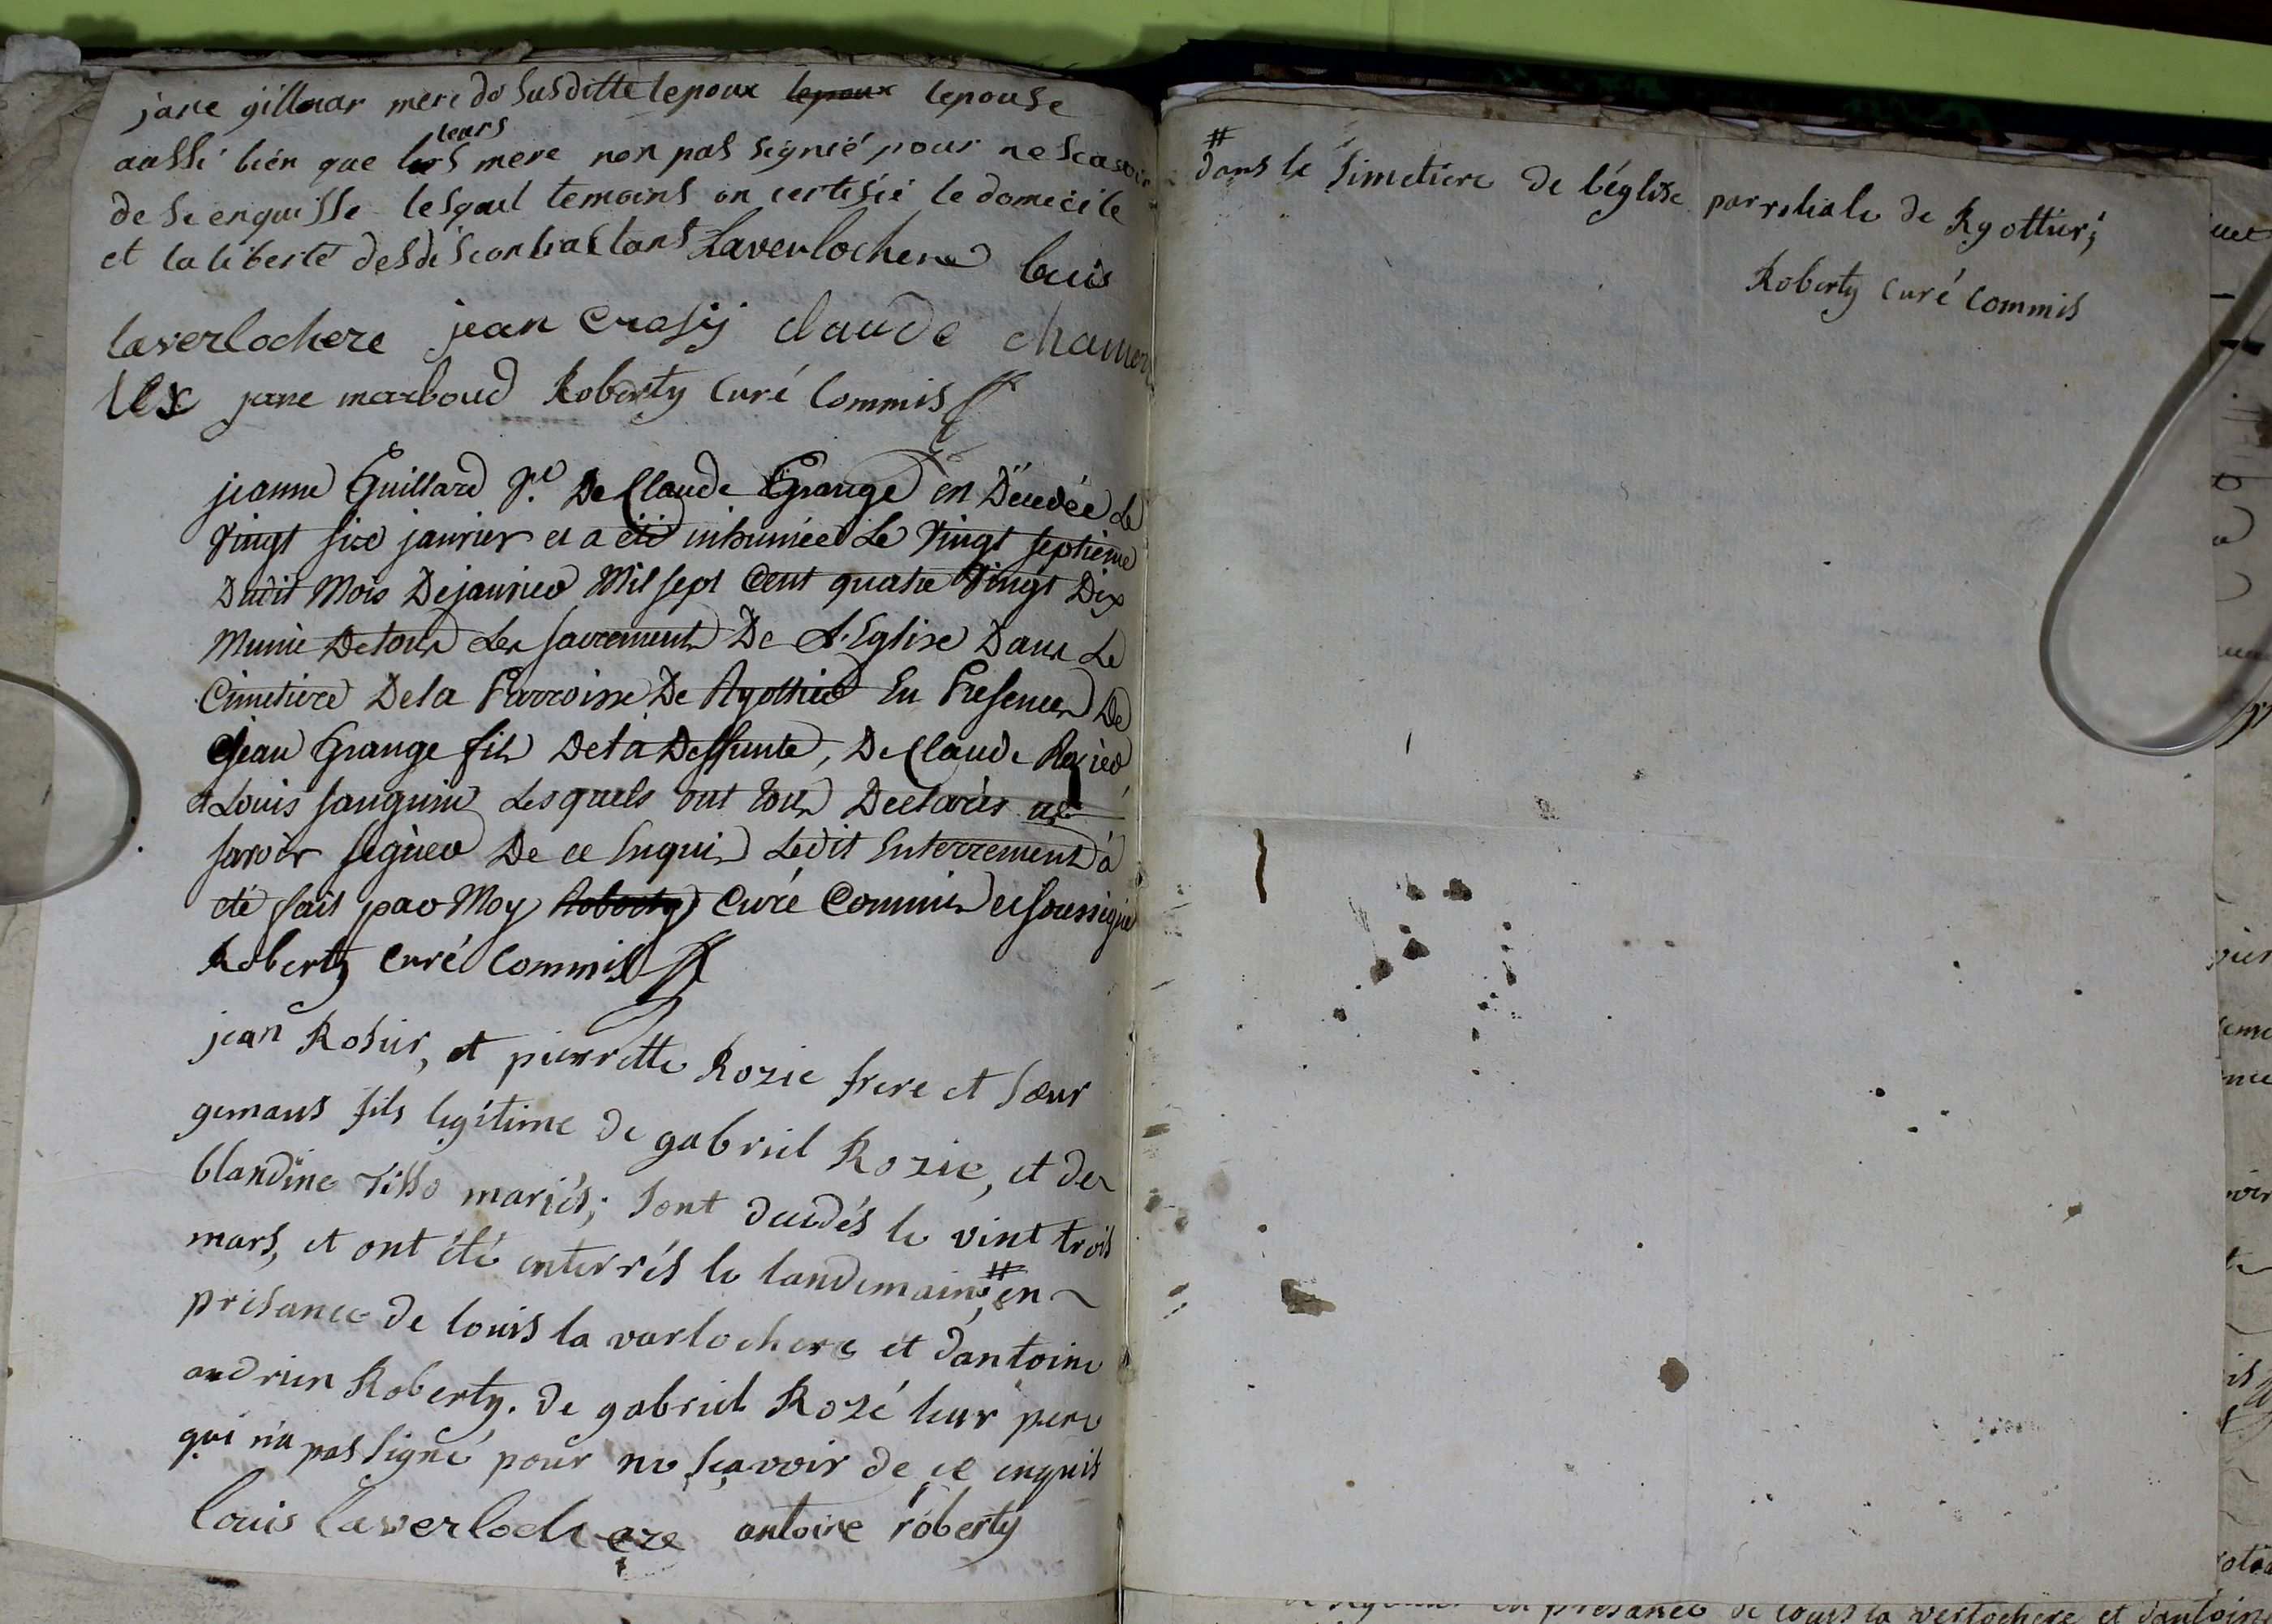 jane gillouar mere de susditte lepoux lepoux lepouse
aussi bien que lurs leurs mere non pas signié pour ne scavoir
de se enquisse lesquel temoins on certifié le domicile
et la liberté desdis contractans Laverlochere louis
laverlochere jean Cresij claude
jane marboud Roberty Curé Commis
jeanne Guillard De Claude Grange en Décédée Le
Vingt size janvier et a été inhumée Le Vingt septième
Dudit Mois De janvier Mil sept Cent quatre Vingt Dix
Munie De tous Les sacrements De L'Eglise Dans Le
Cimetiere De la Parroisse De Ryottier En Presence De
Jean Grange fils De la Deffunte, De Claude
et Louis sanguin Lesquels ont tous Declarés ne
savoir signer De ce Enquis Ledit Enterrement à
été fait par Moy Roberty Curé Commis et soussigné
Roberty Curé Commis
jean Rosier, et pierrette Rozie frere et sœur
gemaus fils legitime de gabriel Rozie, et de
blandine Tisso mariés; sont decedés le vint trois
mars, et ont été enterrés le landemain # ; en
presance de louis la varlochere et dantoine
andrien Roberty. de gabriel Rozé leur pere
qui n'a pas signé pour ne sçavoir de ce enquis
louis laverlochere antoine roberty
#
dans le simetiere de l'églize parrohiale de Ryottier;
Roberty Curé Commis
en presance de louis la verlochere et dantoine